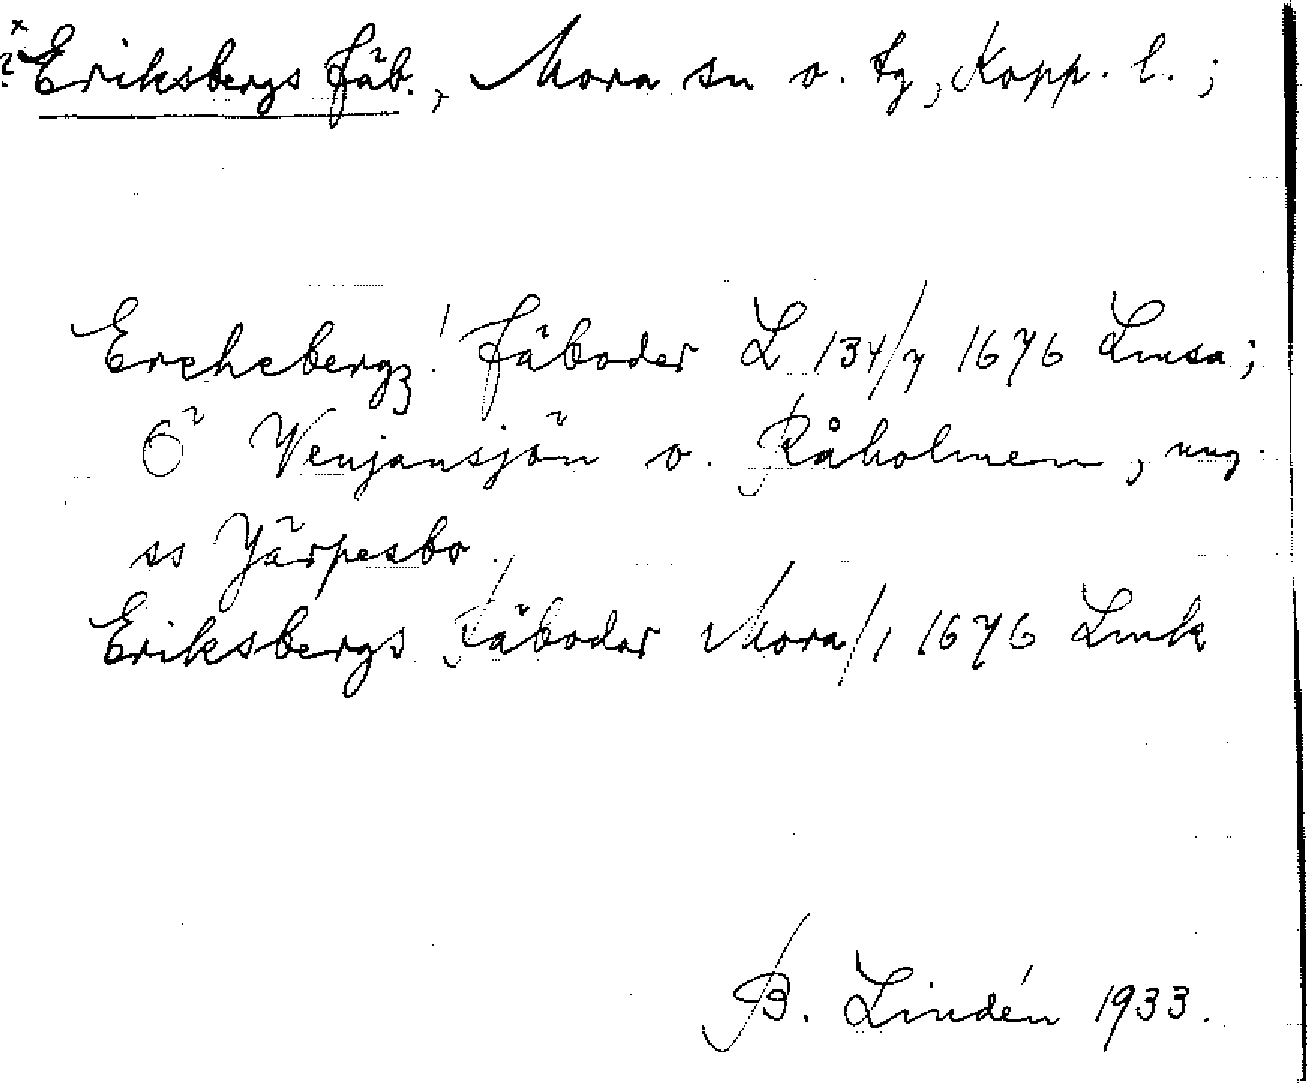 *? Eriksbergs Fäb., Mora sn o. tg, Kopp. l. ;
Erchcbergz! Fäboder L 134/7 1676 Lmsa;
Ö Venjansjön o. Råholmen, ung.
so Järpesbo.
Eriksbergs Fäboder Mora/1 1676 Lmk
B. Lindén 1933.